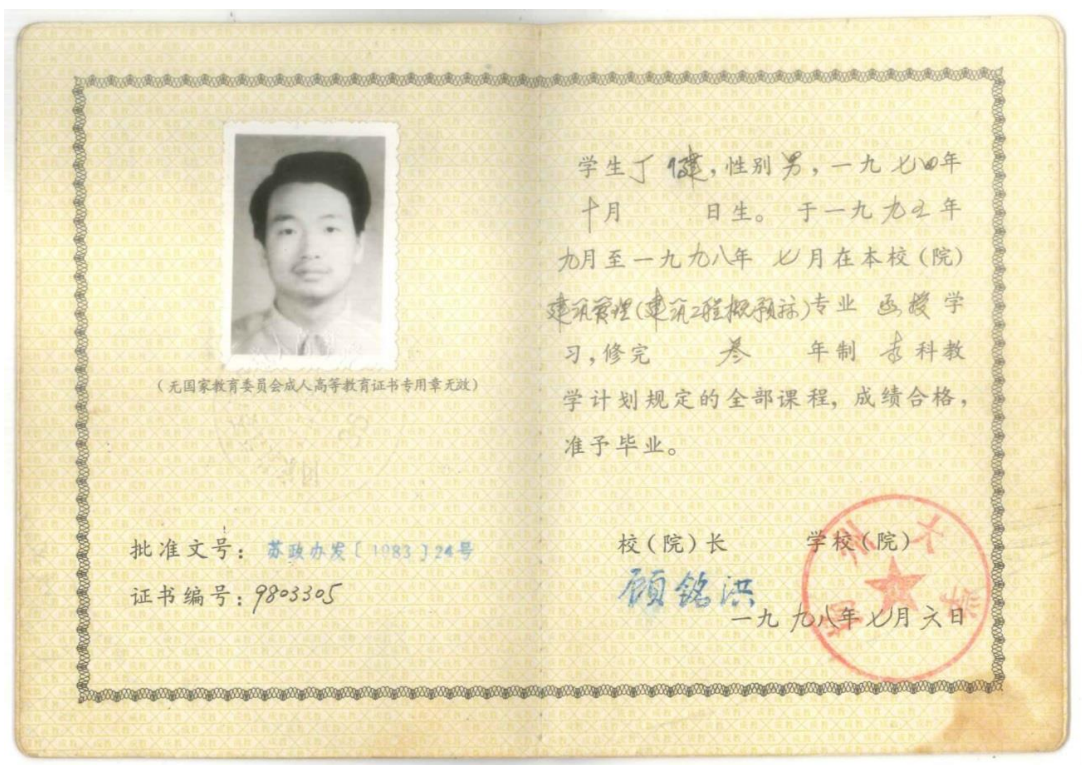 (无国家教育委员会成人高等教育证书专用章无效)
批准文号: 苏政办发[1983]24号
证书编号: 9803305
学生丁健,性别男,一九七四年
十月 日生。于一九九五年
九月至一九九八年 七月在本校(院)
建筑管理(建筑工程概预算)专业 函授学
习,修完 叁 年制 专科教
学计划规定的全部课程, 成绩合格,
准予毕业。
校(院)长 学校(院)
顾铭洪
一九九八年七月六日
扬州大学